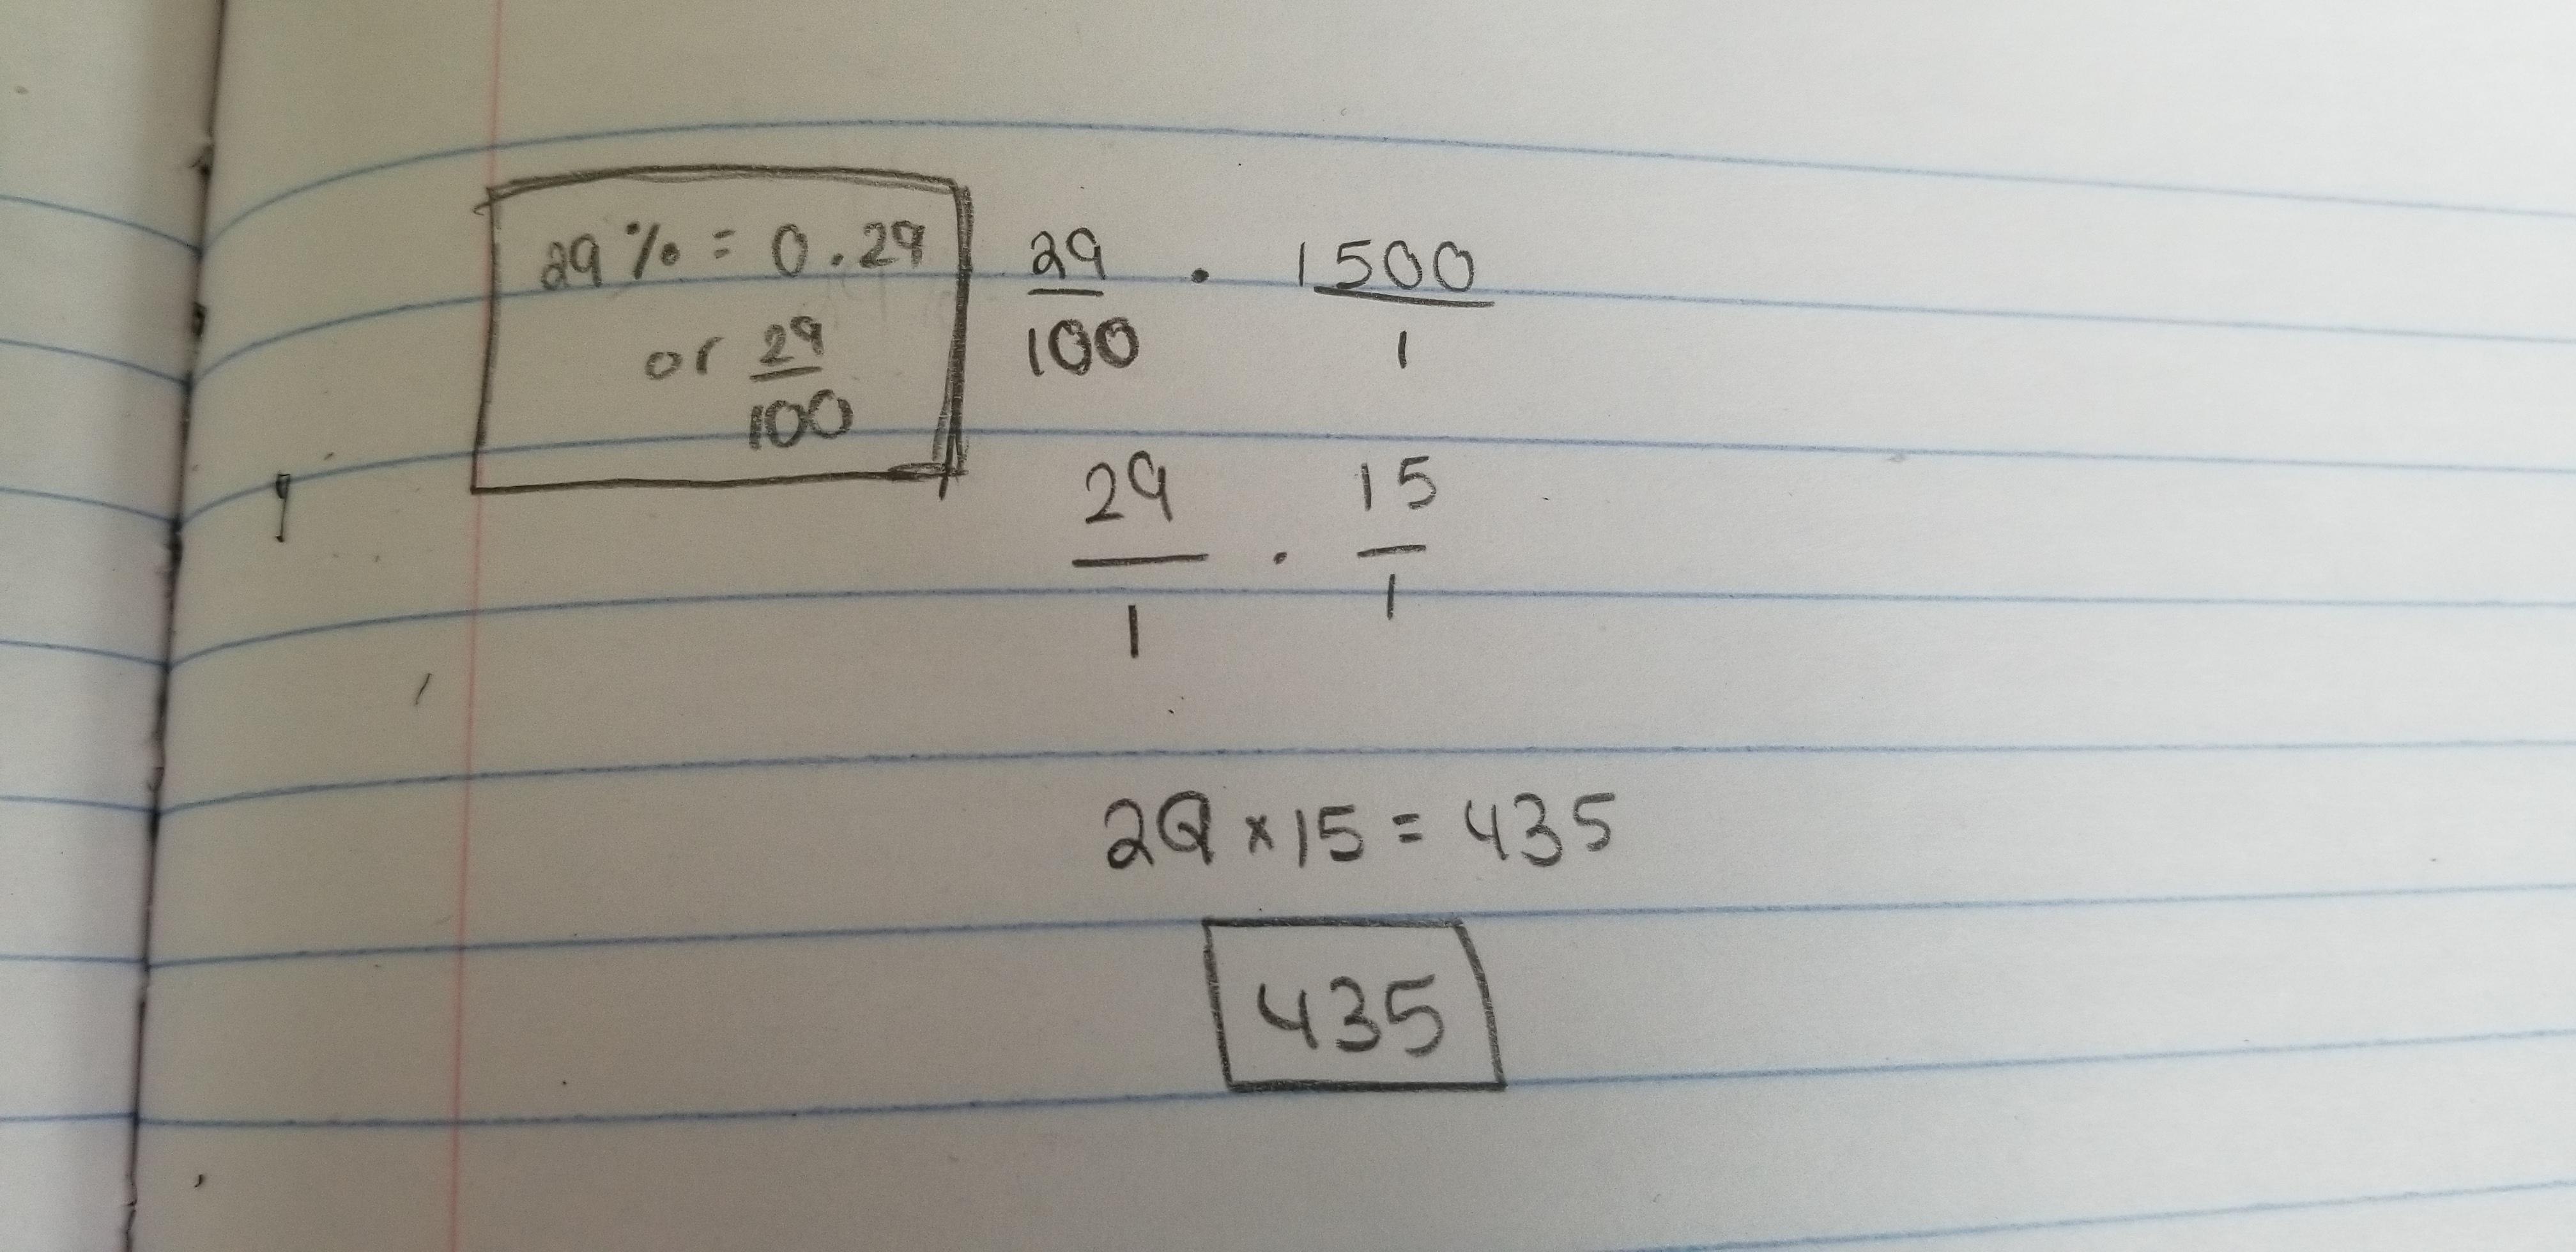 29% = 0.29
or 29/100
29/100 · 1500/1
29/1 · 15/1
29 × 15 = 435
435